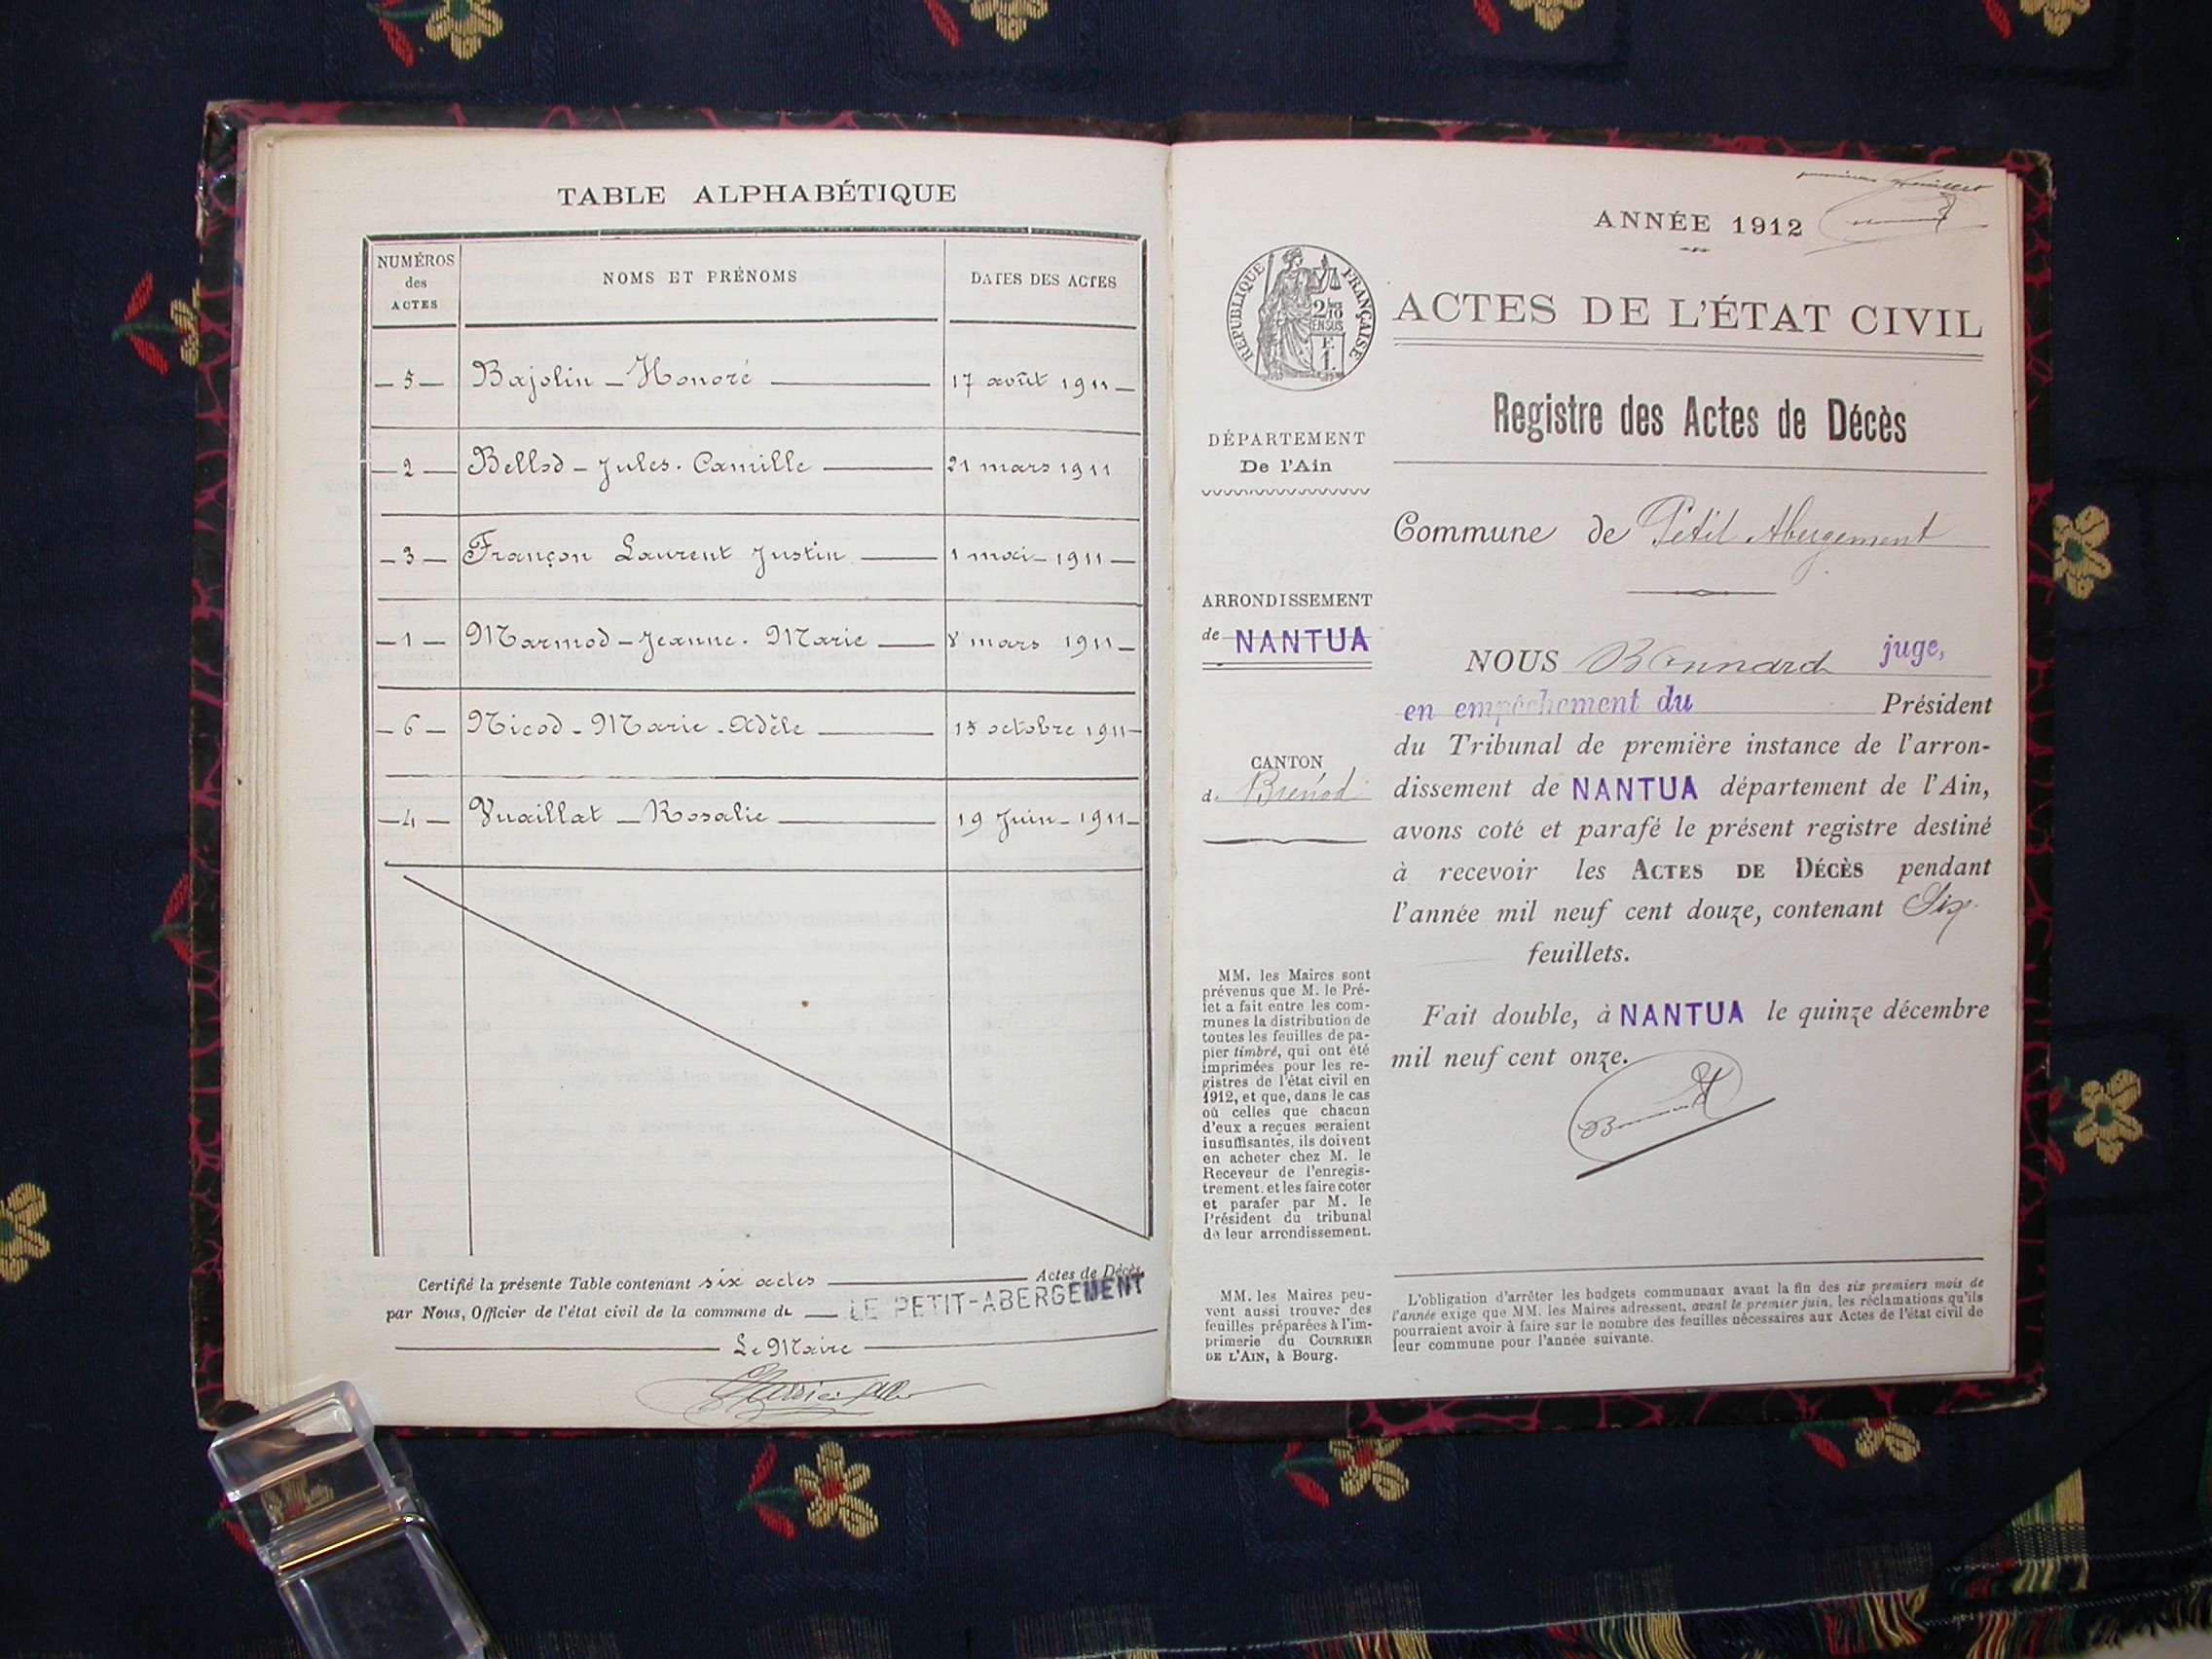 TABLE ALPHABÉTIQUE
NUMÉROS
des
ACTES
NOMS ET PRÉNOMS
DATES DES ACTES
— 5 — Bajolin — Honoré — 17 août 1911 —
— 2 — Bellod — Jules. Camille — 21 mars 1911
— 3 — Françon Laurent Justin — 1 mai — 1911 —
— 1 — Marmod — Jeanne. Marie — 8 mars 1911 —
— 6 — Nicod — Marie. Adèle — 15 octobre 1911 —
— 4 — Vuaillat — Rosalie — 19 Juin — 1911 —
Certifié la présente Table contenant six actes Actes de Décès
par Nous, Officier de l'état civil de la commune de LE PETIT-ABERGEMENT
Le Maire
premier feuillet
ANNÉE 1912
RÉPUBLIQUE FRANÇAISE
2/10
EN SUS
F
1.
ACTES DE L'ÉTAT CIVIL
Registre des Actes de Décès
DÉPARTEMENT
De l'Ain
Commune de Petit Abergement
ARRONDISSEMENT
de NANTUA
CANTON
d. Brénod
NOUS Bonnard juge,
en empêchement du Président
du Tribunal de première instance de l'arron-
dissement de NANTUA département de l'Ain,
avons coté et parafé le présent registre destiné
à recevoir les ACTES DE DÉCÈS pendant
l'année mil neuf cent douze, contenant Six
feuillets.
Fait double, à NANTUA le quinze décembre
mil neuf cent onze.
MM. les Maires sont
prévenus que M. le Pré-
fet a fait entre les com-
munes la distribution de
toutes les feuilles de pa-
pier timbré, qui ont été
imprimées pour les re-
gistres de l'état civil en
1912, et que, dans le cas
où celles que chacun
d'eux a reçues seraient
insuffisantes, ils doivent
en acheter chez M. le
Receveur de l'enregis-
trement. et les faire coter
et parafer par M. le
Président du tribunal
de leur arrondissement.
MM. les Maires peu-
vent aussi trouver des
feuilles préparées à l'im-
primerie du COURRIER
DE L'AIN, à Bourg.
L'obligation d'arrêter les budgets communaux avant la fin des six premiers mois de
l'année exige que MM. les Maires adressent, avant le premier juin, les réclamations qu'ils
pourraient avoir à faire sur le nombre des feuilles nécessaires aux Actes de l'état civil de
leur commune pour l'année suivante.